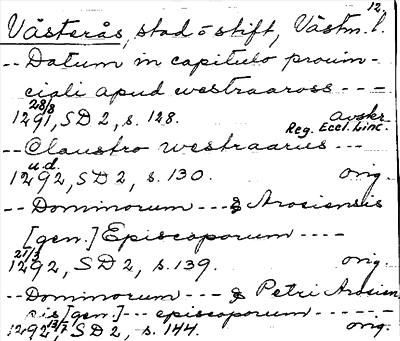 12.
Västerås, stad o stift, Västm. l.
-- Datum in capitulo prouin-
ciali apud westraaross - - -
28/8
1291, SD 2, s. 128. avskr.
Reg. Eccl. Linc.
-- Claustro westraarus - - -
u.d.
1292, SD 2, s. 130. orig.
-- Dominorum --- & Arosiensis
[gen.] Episcoporum ----
21/3
1292, SD 2, s. 139. orig.
-- Dominorum --- & Petri Arosien
sis [gen.] --- episcoporum ------
13/7
1292, SD 2, s. 144. orig.